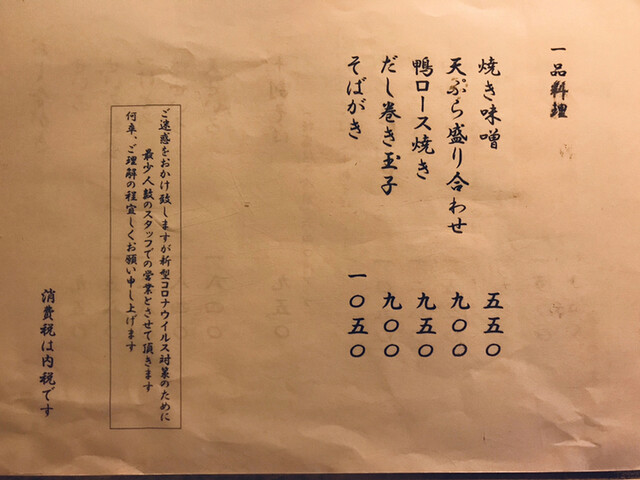 一品料理
焼き味噌 五五〇
天ぷら盛り合わせ 九〇〇
鴨ロース焼き 九五〇
だし巻き玉子 九〇〇
そばがき 一〇五〇
ご迷惑をおかけ致しますが新型コロナウイルス対策のために
最少人数のスタッフでの営業とさせて頂きます
何卒、ご理解の程宜しくお願い申し上げます
消費税は内税です